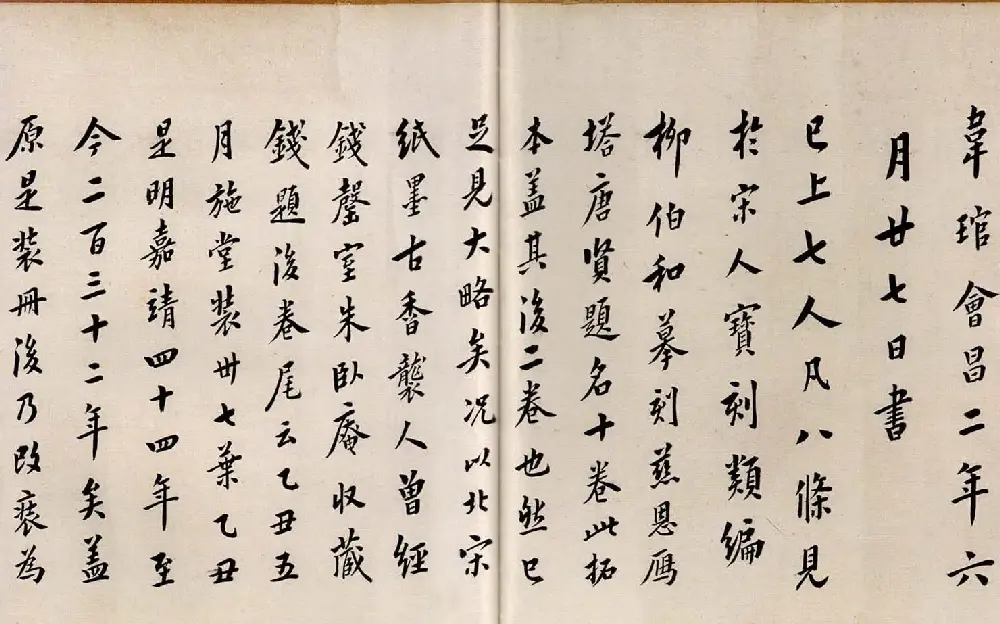 韋琯會昌二年六
月廿七日書
已上七人凡八條見
於宋人寶刻類編
柳伯和摹刻慈恩鴈
塔唐賢題名十卷此拓
本盖其後二卷也然已
足見大略矣况以北宋
紙墨古香襲人曾經
錢罄室朱臥庵收藏
錢題後卷尾云乙丑五
月施堂装卌七葉乙丑
是明嘉靖四十四年至
今二百三十二年矣盖
原是装冊後乃改裱為